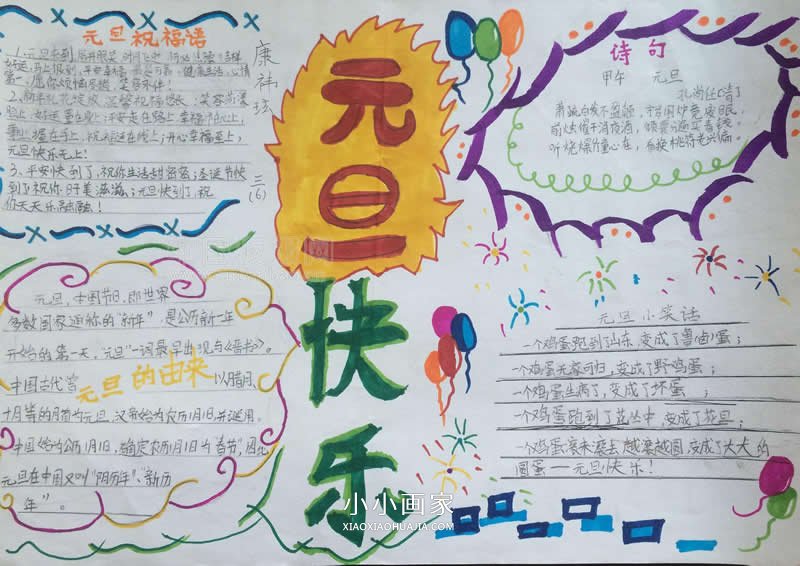 元旦祝福语
2、
祝福
福握在手上,
开心幸福至上,
元旦快乐无上!
3、平安快到了,祝你生活甜蜜蜜;圣诞节快
到了祝你日子美滋滋;元旦快到了,祝
你天天乐融融!
康祎
三(6)
元旦
快
乐
诗句
甲午 元旦
孔尚任(清)
萧疏白发不盈颠,守岁围炉竟废眠。
剪烛催干消夜酒,倾囊分遍买春钱。
听烧爆竹童心在,看换桃符老兴偏。
元旦,中国节日,即世界
多数国家通称的“新年”,是公历新一年
开始的第一天。元旦一词最早出现与《晋书》。
元旦的由来
中国古代曾以腊月、
十月等的月首为元旦,汉武帝始为农历1月1日并沿用。
中国始为公历1月1日,确定农历1月1日为“春节”,因此
元旦在中国又叫“阳历年”、“新历
年”。
元旦小笑话
一个鸡蛋跑到山东,变成了鲁卤蛋;
一个鸡蛋无家可归,变成了野鸡蛋;
一个鸡蛋生病了,变成了坏蛋;
一个鸡蛋跑到了花丛中,变成了花旦;
一个鸡蛋滚来滚去越滚越圆,变成了大大的
圆蛋——元旦快乐!
小小画家
XIAOXIAOHUAJIA.COM